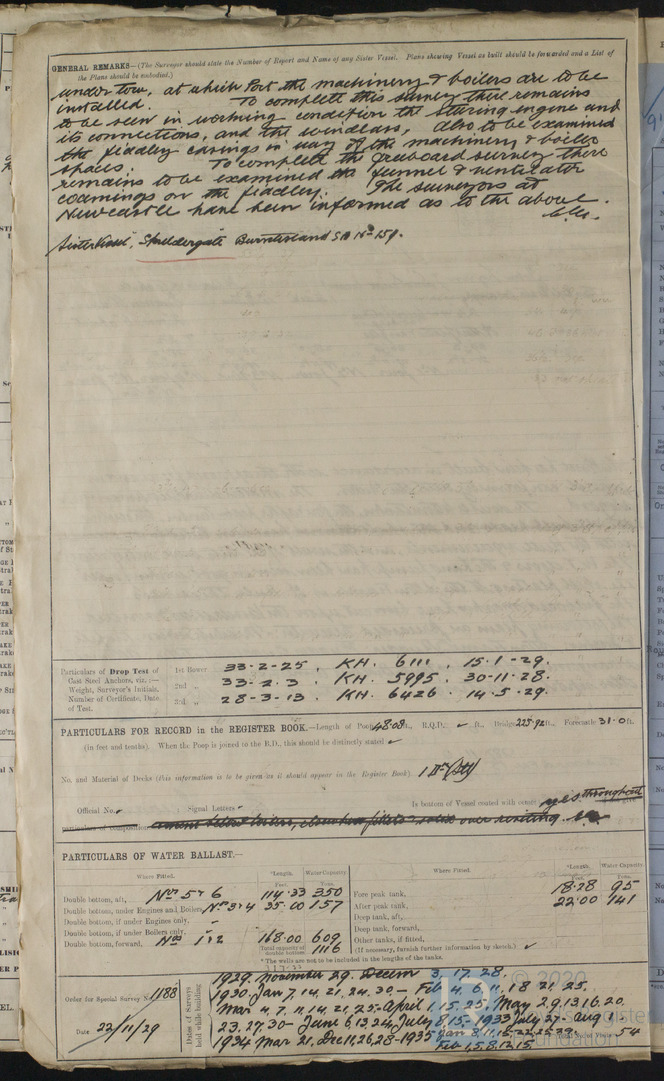 GENERAL REMARKS—(The Surveyor should state the Number of Report and Name of any Sister Vessel. Plans showing Vessel as built should be forwarded and a List of
the Plans should be embodied.)
under tow, at which Port the machinery & boilers are to be
installed. To complete this survey there remains
to be seen in working condition the steering engine and
its connections, and the windlass, Also to be examined
the fiddley casings in way of the machinery & boiler
spaces. To complete the freeboard survey there
remains to be examined the funnel & ventilator
coamings on the fiddley. The surveyors at
Newcastle have been informed as to the above.
Sister Vessel, Skeldergate Burntisland S.B. No 159.
Particulars of Drop Test of
Cast Steel Anchors, viz.:—
Weight, Surveyor's Initials,
Number of Certificate, Date
of Test.
1st Bower 33-2-25, KH. 6111, 15-1-29.
2nd „ 33-2-3 KH. 5995 30-11-28.
3rd „ 28-3-13 KH. 6426 14-5-29.
PARTICULARS FOR RECORD in the REGISTER BOOK.—Length of Poop 48.08 ft., R.Q.D. ✓ ft., Bridge 225.92 ft., Forecastle 31.0 ft.
(In feet and tenths). When the Poop is joined to the B.D., this should be distinctly stated ✓
No. and Material of Decks (this information is to be given as it should appear in the Register Book) 1 Dk (Stl)
Official No. Signal Letters Is bottom of Vessel coated with cement yes throughout
particulars of composition cement below boilers, elsewhere fillets over riveting.
PARTICULARS OF WATER BALLAST.—
Where Fitted. *Length. Feet. Water Capacity. Tons. Where Fitted. *Length. Feet. Water Capacity. Tons.
Double bottom, aft, Nos 5 & 6 114.33 350 Fore peak tank, 18.28 95
Double bottom, under Engines and Boilers Nos 3 & 4 35.00 157 After peak tank, 22.00 141
Double bottom, if under Engines only, - Deep tank, aft,
Double bottom, if under Boilers only, Deep tank, forward,
Double bottom, forward, Nos 1 & 2 168.00 609 Other tanks, if fitted,
Total capacity of double bottom 1116 (If necessary, furnish further information by sketch.) ✓
* The wells are not to be included in the lengths of the tanks.
Order for Special Survey No. 1188
Date 22/11/29
Dates of Surveys held while building
1929. November 29. Decem 3. 17. 28.
1930. Jan 7. 14. 21. 24. 30 - Feb 4. 11. 18 21 25.
Mar 4. 7. 11. 14. 21. 25. April 1. 15. 25. May 2. 9. 13. 16. 20.
23. 27. 30 - June 6. 13. 24. July 8. 15. 1933 July 27 - Aug 1.
1934 Mar 21. Dec 11. 26. 28 - 1935 Jan 8. 11. 18. 22. 25. 29.
Feb 1. 5. 8. 12. 15.
Total No. of Visits 54
© 2020